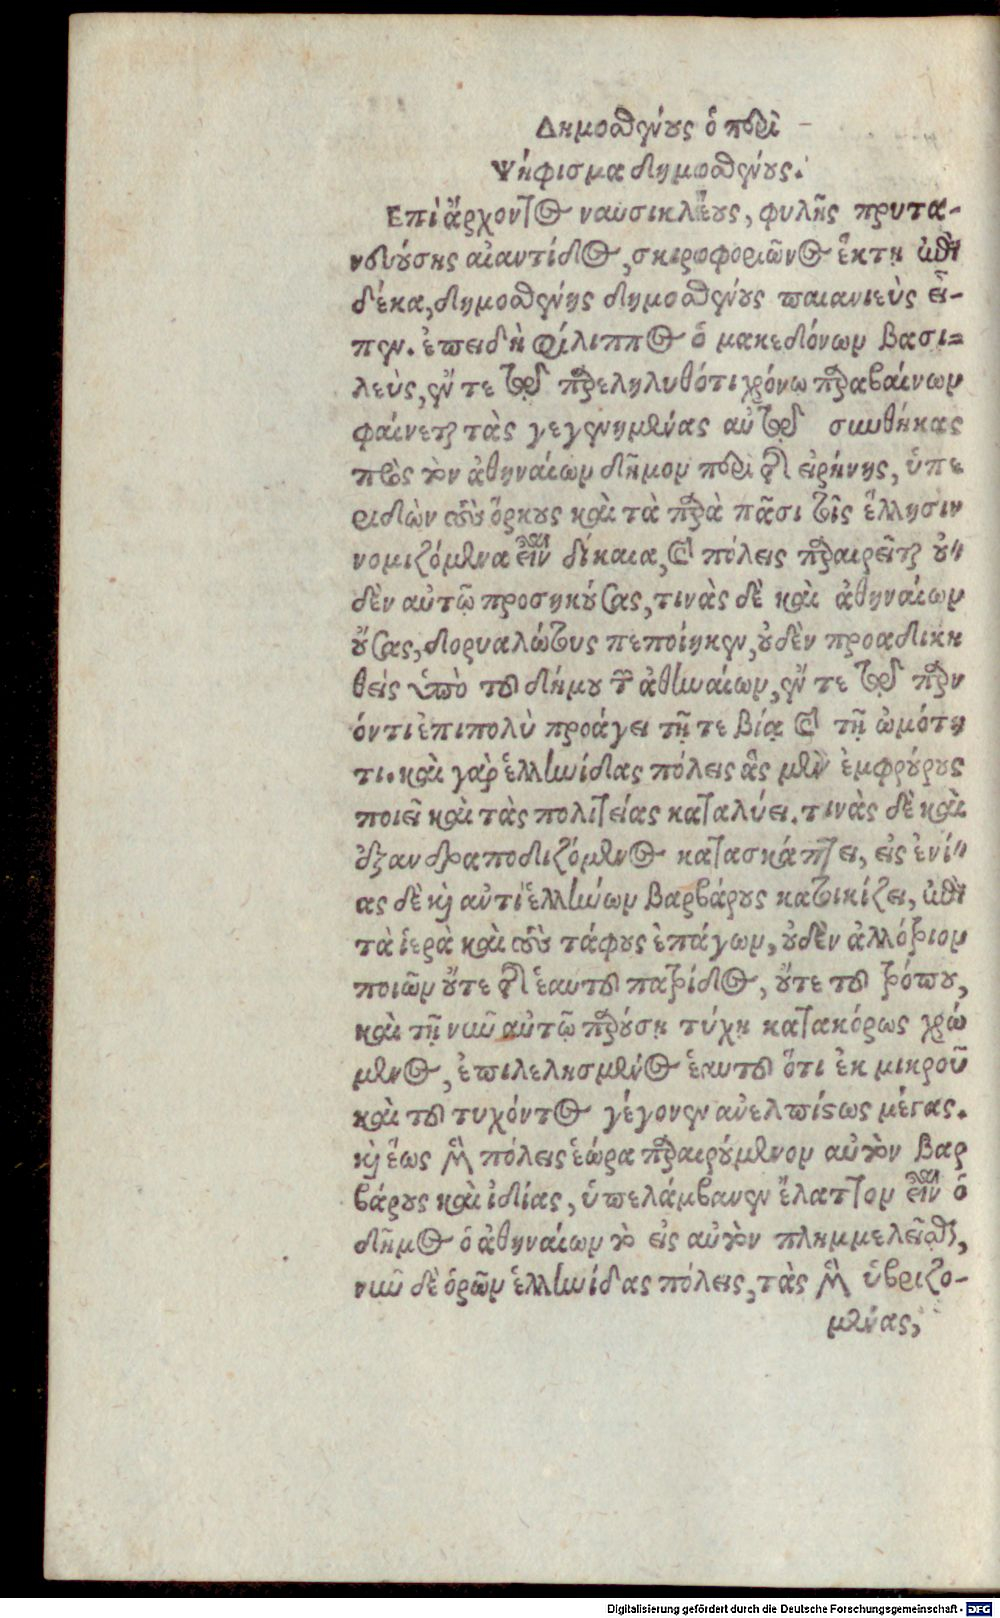 Δημοσθένους ὁ περὶ
Ψήφισμα δημοσθένους.
Επὶ ἄρχοντος ναυσικλέους, φυλῆς πρυτα-
νευούσης αἰαντίδος, σκιροφοριῶνος ἕκτῃ καὶ
δέκα, δημοσθένης δημοσθένους παιανιεὺς εἶ-
πεν. ἐπειδὴ φίλιππος ὁ μακεδόνων βασι-
λεὺς, ἔν τε τῷ παρεληλυθότι χρόνω παραβαίνων
φαίνεται τὰς γεγενημένας αὐτῷ συνθήκας
πρὸς τὸν ἀθηναίων δῆμον περὶ τῆς εἰρήνης, ὑπε
ριδὼν τοὺς ὅρκους καὶ τὰ παρὰ πᾶσι τοῖς ἕλλησιν
νομιζόμενα εἶναι δίκαια, καὶ πόλεις παραιρεῖται οὐ-
δὲν αὐτῷ προσηκούσας, τινὰς δὲ καὶ ἀθηναίων
οὔσας, δορυαλώτους πεποίηκεν, οὐδὲν προαδικη
θεὶς ὑπὸ τοῦ δήμου τῶν ἀθηναίων, ἔν τε τῷ παρ
όντι ἐπιπολὺ προάγει τῇ τε βίᾳ καὶ τῇ ὠμότη
τι. καὶ γὰρ ἑλληνίδας πόλεις ἃς μὲν ἐμφρούρους
ποιεῖ καὶ τὰς πολιτείας καταλύει. τινὰς δὲ καὶ
ἐξανδραποδιζόμενος κατασκάπτει, εἰς ἐνί-
ας δὲ καὶ αὐτὶ ἑλλήνων βαρβάρους κατοικίζει, ἐπὶ
τὰ ἱερὰ καὶ τοὺς τάφους ἐπάγων, οὐδὲν ἀλλότριον
ποιῶν οὔτε τῆς ἑαυτοῦ πατρίδος, οὔτε τοῦ τρόπου,
καὶ τῇ νῦν αὐτῷ παρούσῃ τύχῃ κατακόρως χρώ
μενος, ἐπιλελησμένος ἑαυτοῦ ὅτι ἐκ μικροῦ
καὶ τοῦ τυχόντος γέγονεν ἀνελπίστως μέγας.
καὶ ἕως μὲν πόλεις ἑώρα παραιρούμενον αὐτὸν βαρ
βάρους καὶ ἰδίας, ὑπελάμβανεν ἔλαττον εἶναι ὁ
δῆμος ὁ ἀθηναίων τὸ εἰς αὐτὸν πλημμελεῖσθαι,
νῦν δὲ ὁρῶν ἑλληνίδας πόλεις, τὰς μὲν ὑβριζο-
μένας,
Digitalisierung gefördert durch die Deutsche Forschungsgemeinschaft - DFG